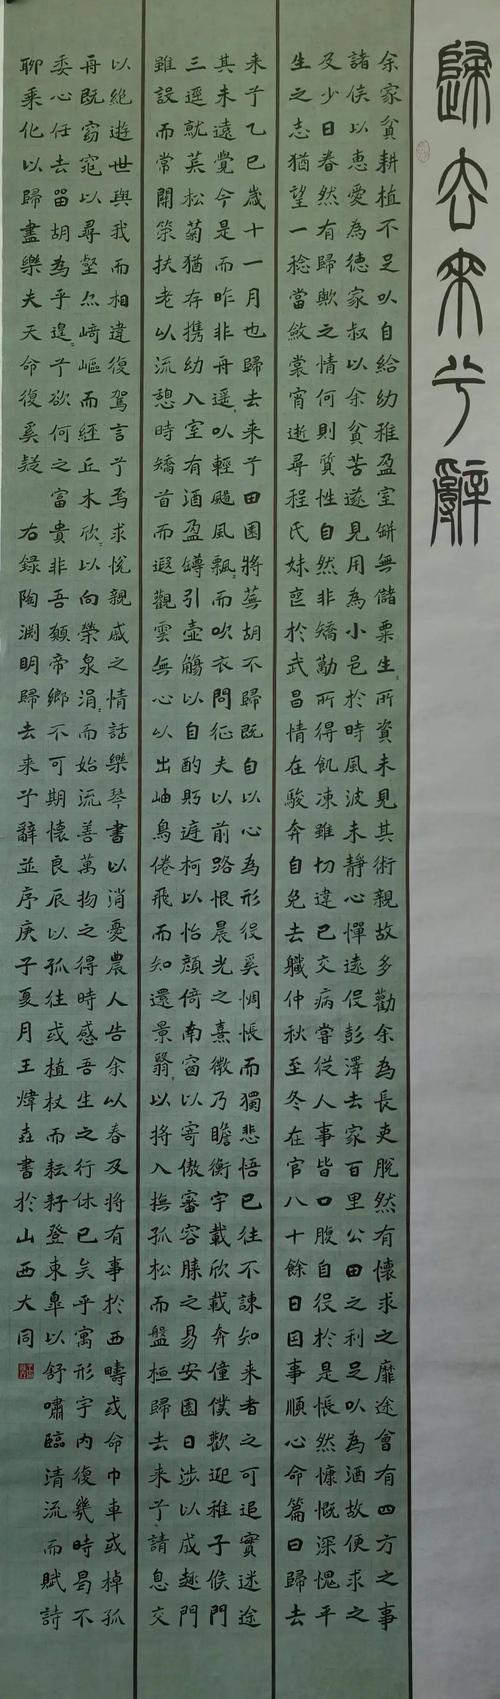 歸去來兮辭
余家貧耕植不足以自給幼稚盈室缾無儲粟生〻所資未見其術親故多勸余為長吏脫然有懷求之靡途會有四方之事
諸侯以惠愛為德家叔以余貧苦遂見用為小邑於時風波未靜心憚遠役彭澤去家百里公田之利足以為酒故便求之
及少日眷然有歸歟之情何則質性自然非矯勵所得飢凍雖切違己交病嘗從人事皆口腹自役於是悵然慷慨深愧平
生之志猶望一稔當斂裳宵逝尋程氏妹喪於武昌情在駿奔自免去職仲秋至冬在官八十餘日因事順心命篇曰歸去
來兮乙巳歲十一月也歸去來兮田園將蕪胡不歸既自以心為形役奚惆悵而獨悲悟已往不諫知來者之可追實迷途
其未遠覺今是而昨非舟遥〻以輕颺風飄〻而吹衣問征夫以前路恨晨光之熹微乃瞻衡宇載欣載奔僮僕歡迎稚子候門
三逕就荒松菊猶存携幼入室有酒盈罇引壺觴以自酌眄庭柯以怡顏倚南窗以寄傲審容膝之易安園日涉以成趣門
雖設而常關策扶老以流憩時矯首而遐觀雲無心以出岫鳥倦飛而知還景翳〻以將入撫孤松而盤桓歸去來兮請息交
以絕遊世與我而相違復駕言兮焉求悅親戚之情話樂琴書以消憂農人告余以春及將有事於西疇或命巾車或棹孤
舟既窈窕以尋壑亦崎嶇而經丘木欣〻以向榮泉涓〻而始流善萬物之得時感吾生之行休已矣乎寓形宇內復幾時曷不
委心任去留胡為乎遑〻兮欲何之富貴非吾願帝鄉不可期懷良辰以孤往或植杖而耘耔登東皋以舒嘯臨清流而賦詩
聊乘化以歸盡樂夫天命復奚疑 右錄陶淵明歸去來兮辭並序庚子夏月王煒垚書於山西大同